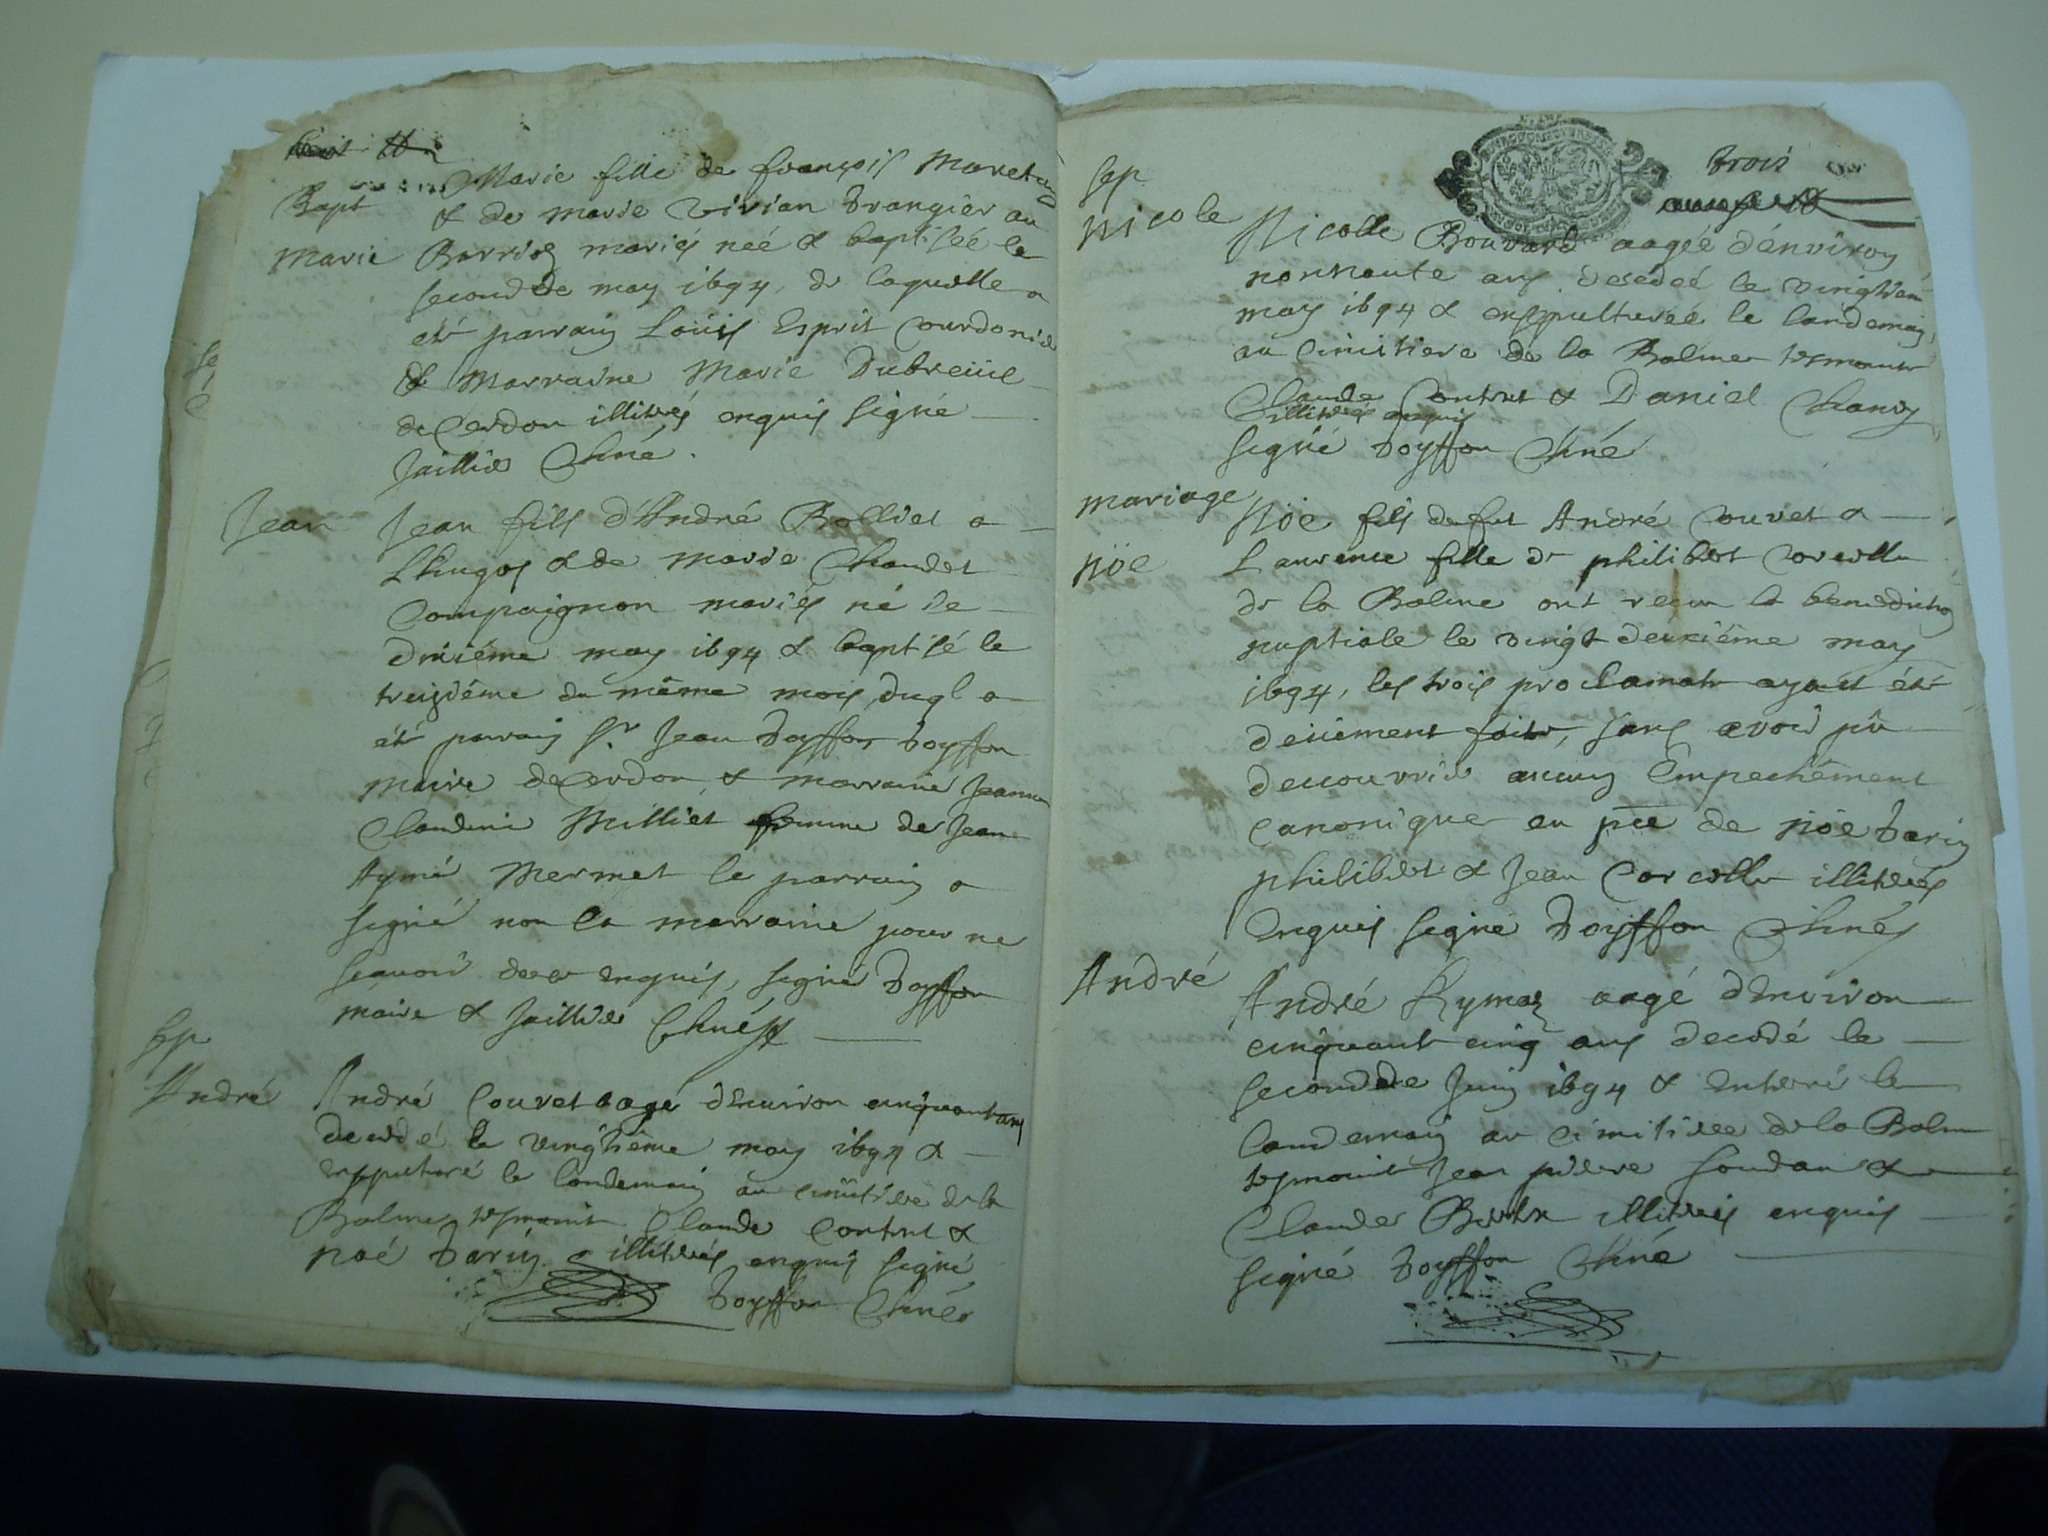 Bapt
Marie
Marie fille de françois Maret
& de marie vivian Brangier au
Barrioz mariés née & baptisée le
second de may 1694, de laquelle a
été parrain Loüis Esprit Courdonier
& Marraine Marie Dubreüil
de Cerdon illitrés enquis signé
Jaillier
Jean
Jean fils d'André Bolliet a
& de marie Chaudet
Compaignon mariés né le
dixiéme may 1694 & baptisé le
treiziéme du même mois, duql a
été parrain Sr Jean Boysson
maire de Cerdon & marraine Jeanne
Claudine Milliet femme de Jean
Aymé Mermet le parrain a
signé non la marraine pour ne
sçavoir de ce enquis, signé Boysson
maire & Jaillier
Sep
André
André Couvet aagé d'environ cinquant ans
decedé le vingtiême may 1694 &
ensepulturé le landemain au cimitiere de la
Balme, tesmoins Claude Contrut &
noé Barin illitrés enquis signé
Boysson
trois
Sep
Nicole
Nicolle Bouvard aagée d'environ
nonnante ans decedeé le vingtiem
may 1694 & ensepultureé le landemain
au cimitiere de la Balme tesmoins
Claude Contrut & Daniel Chaney
illitrés enquis
signé Boysson
mariage
Nöe
Nöe fils de fut André Couvet &
Laurence fille de philibert Corcelle
de la Balme ont receu la benediction
nuptiale le vingt deuxiême may
1694, les trois proclamations ayant été
deüement faites, sans avoir pû
decouvrir aucun Empechêment
canonique en pñce de nöe Barin
philibert & Jean Corcelle illitrés
enquis signé Boysson
André
André Rymoz aagé d'Environ
cinquante cinq ans decedé le
second de Juin 1694 & Enterré le
landemain au cimitiere de la Balme
tesmoins Jean pierre Goudan &
Claude illitrés enquis
signé Boysson